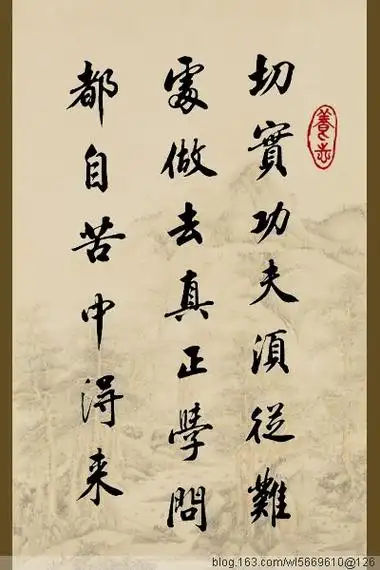 切實功夫須從難
處做去真正學問
都自苦中得来
blog.163.com/wl5669610@126